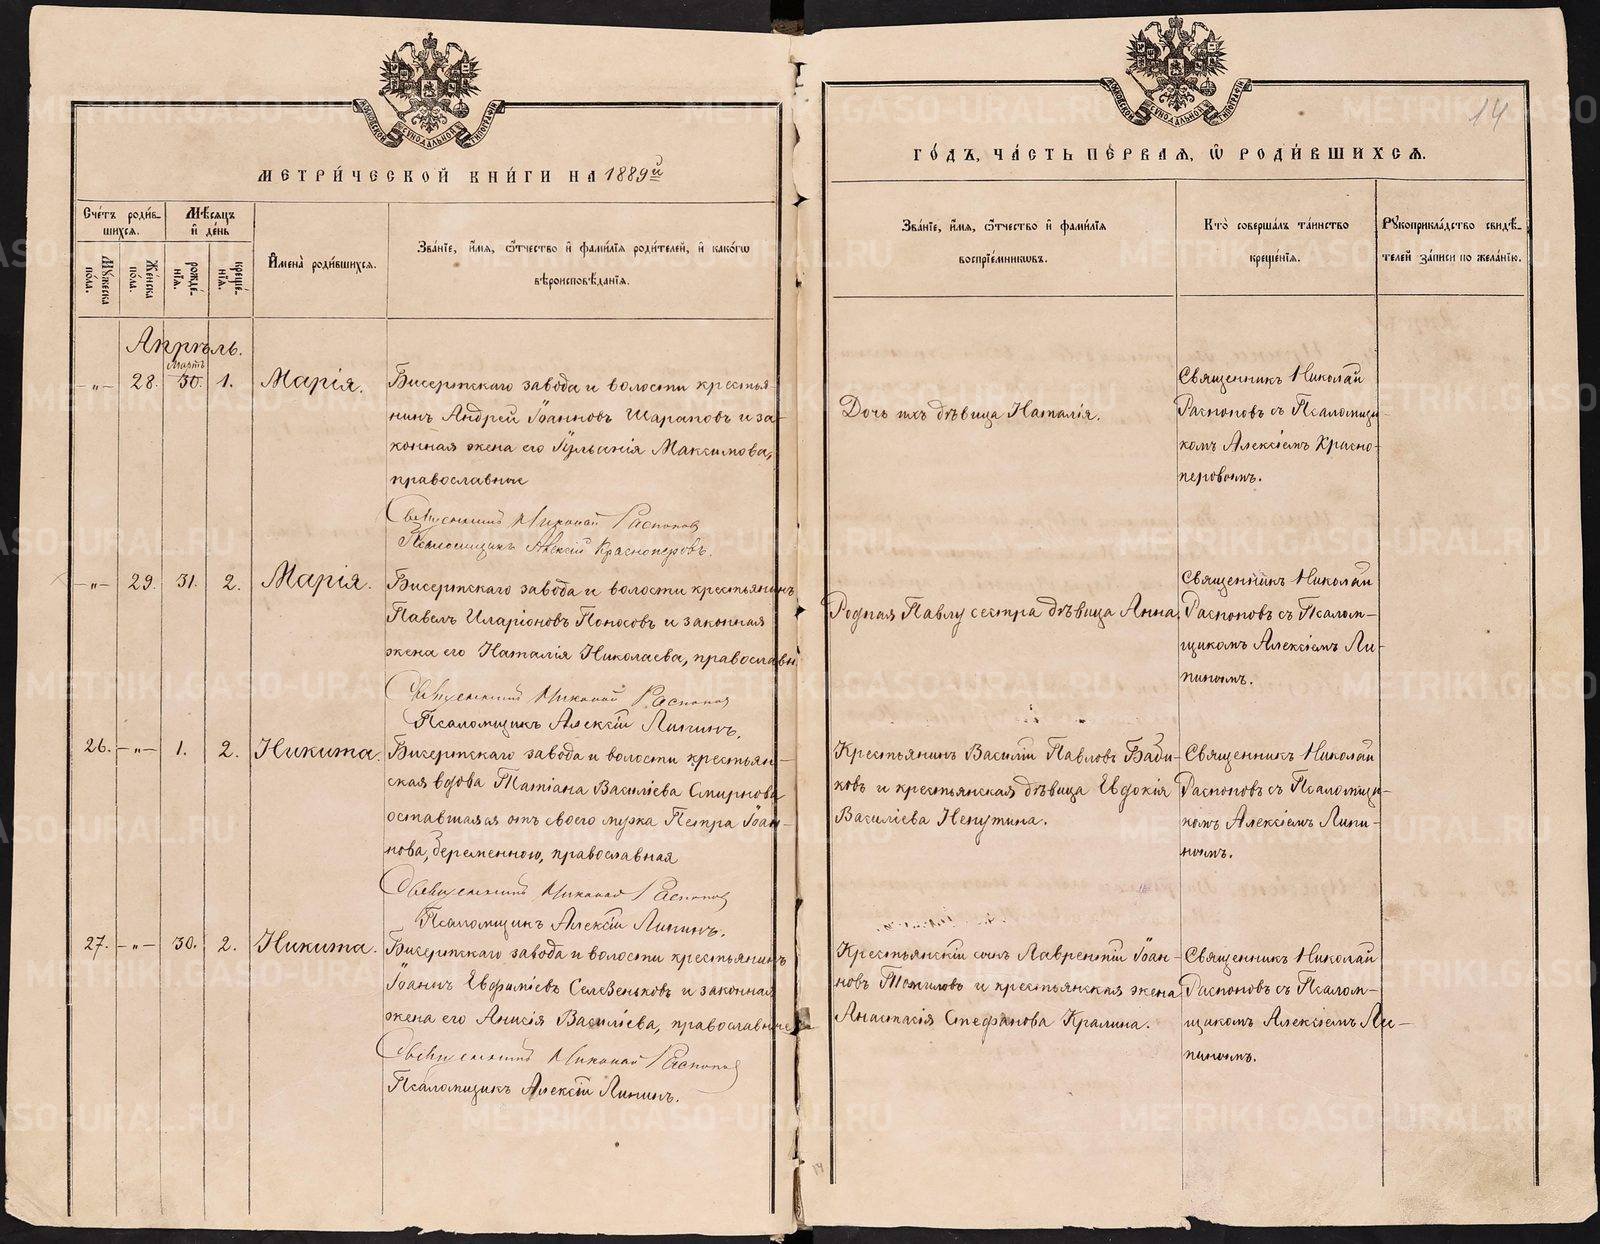 МЕТРИ́ЧЕСКОЙ КНИ́ГИ НА 1889й
Сче́тъ роди́в-
шихся.
Мѣсяцъ
и҆ де́нь
Мꙋжеска
по́ла.
Же́нска
по́ла.
рожде́-
нїѧ.
креще́-
нїѧ.
И҆мена̀ роди́вшихсѧ.
Зва́нїе, и҆́мѧ, ѻ҆́тчество и҆ фами́лїѧ роди́телей, и҆ како́гѡ
вѣроисповѣ́данїѧ.
Апрѣль.
Мартъ
-„- 28. 30. 1. Марія.
Бисертскаго завода и волости крестья-
нинъ Андрей Іоанновъ Шараповъ и за-
конная жена его Іульянія Максимова,
православные
Священникъ Николай Распопов
Псаломщикъ Алексій Красноперовъ.
-„- 29. 31. 2. Марія.
Бисертскаго завода и волости крестьянинъ
Павелъ Иларіоновъ Поносовъ и законная
жена его Наталія Николаева, православны
Священникъ Николай Распопов
Псаломщикъ Алексій Липинъ.
26. -„- 1. 2. Никита.
Бисертскаго завода и волости крестьян-
ская вдова Татіана Василіева Смирнова
оставшаяся отъ своего мужа Петра Іоан-
нова, беременною, православная
Священникъ Николай Распопов
Псаломщикъ Алексій Липинъ.
27. -„- 30. 2. Никита.
Бисертскаго завода и волости крестьянинъ
Іоаннъ Евфиміевъ Селезеньковъ и законная
жена его Анисія Василіева, православные
Священникъ Николай Распопов
Псаломщикъ Алексій Липинъ.
14
ГО́ДЪ, ЧА́СТЬ ПЕ́РВАѦ, Ѽ РОДИ́ВШИХСѦ.
Зва́нїе, и҆́мѧ, ѻ҆́тчество и҆ фами́лїѧ
воспрїе́мниковъ.
Кто̀ соверша́лъ та́инство
креще́нїѧ.
Рꙋкоприкла́дство свидѣ́-
телей за́писи по жела́нїю.
Дочь ихъ дѣвица Наталія.
Священникъ Николай
Распоповъ съ Псаломщи-
комъ Алексіемъ Красно-
перовымъ.
Родная Павлу сестра дѣвица Анна.
Священникъ Николай
Распоповъ съ Псалом-
щикомъ Алексіемъ Ли-
пинымъ.
Крестьянинъ Василій Павловъ Бади-
ковъ и крестьянская дѣвица Евдокія
Василіева Непутина.
Священникъ Николай
Распоповъ съ Псаломщи-
комъ Алексіемъ Липи-
нымъ.
Крестьянскій сынъ Лаврентій Іоан-
новъ Томиловъ и крестьянская жена
Анастасія Стефанова Кралина.
Священникъ Николай
Распоповъ съ Псалом-
щикомъ Алексіемъ Ли-
пинымъ.
METRIKI.GASO-URAL.RU